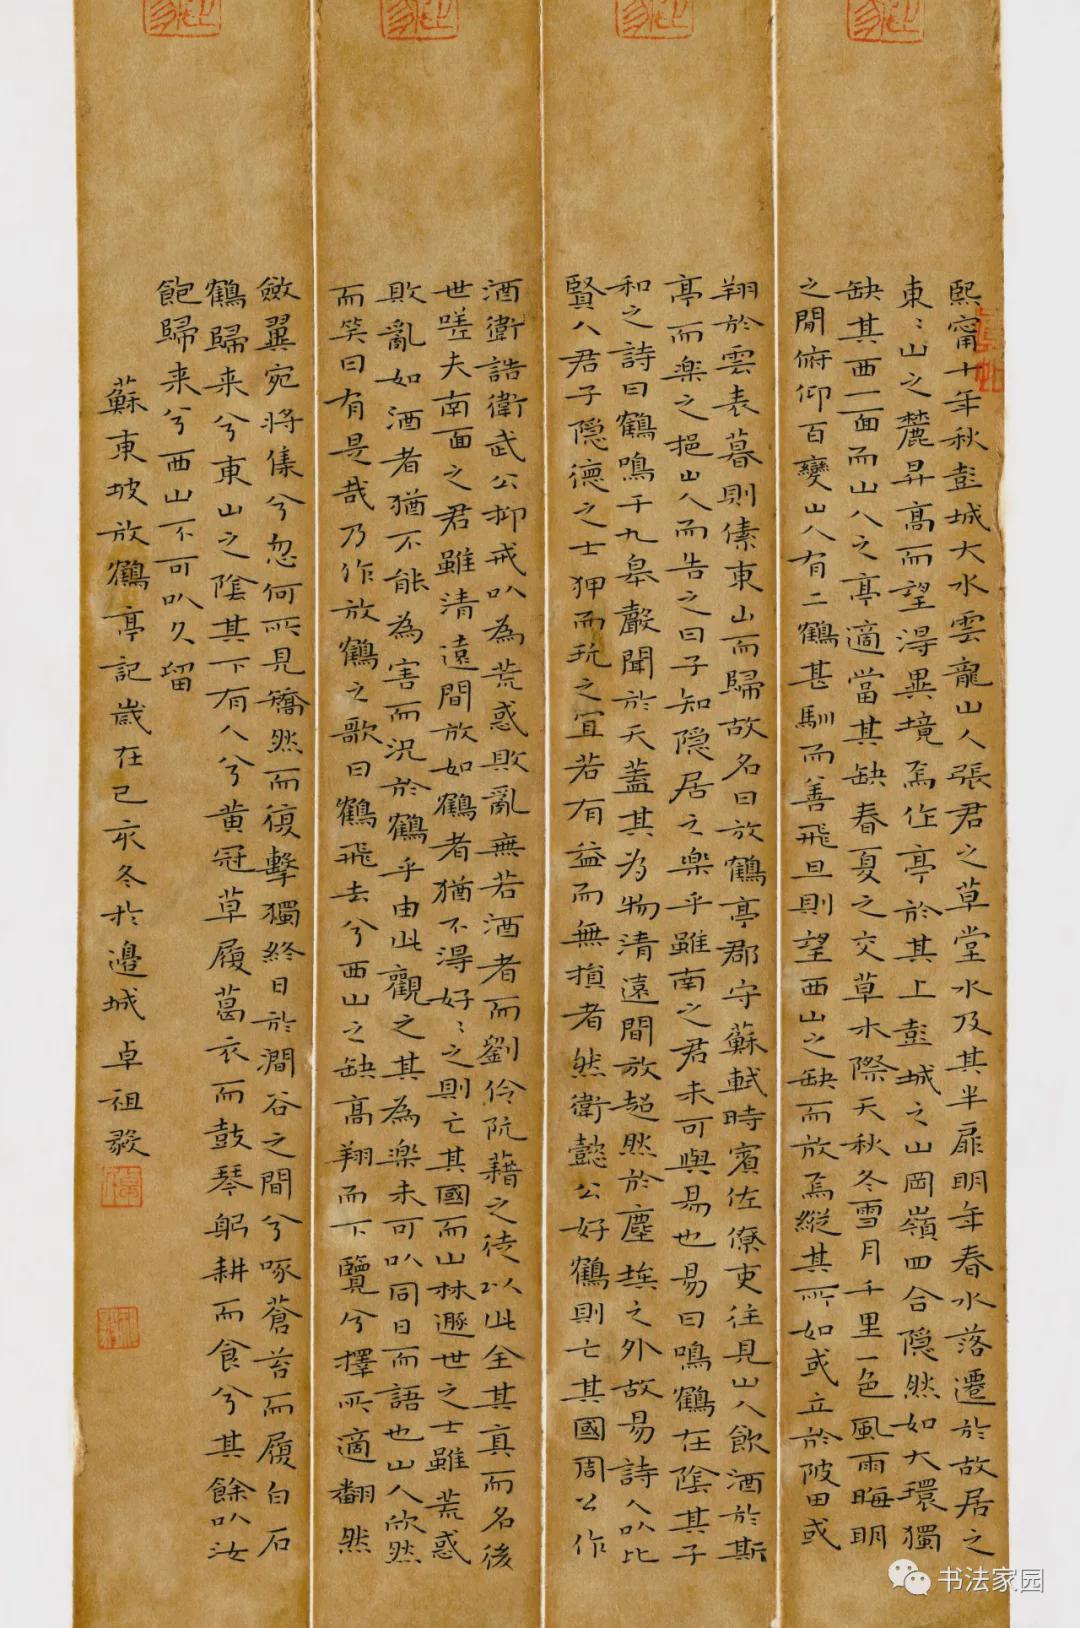 熙甯十年秋彭城大水雲龍山人張君之草堂水及其半扉明年春水落遷於故居之
東〻山之麓昇高而望得異境焉作亭於其上彭城之山岡嶺四合隱然如大環獨
缺其西一面而山人之亭適當其缺春夏之交草木際天秋冬雪月千里一色風雨晦明
之間俯仰百變山人有二鶴甚馴而善飛旦則望西山之缺而放焉縱其所如或立於陂田或
翔於雲表暮則傃東山而歸故名曰放鶴亭郡守蘇軾時賓佐僚吏往見山人飲酒於斯
亭而樂之挹山人而告之曰子知隱居之樂乎雖南之君未可與易也易曰鳴鶴在陰其子
和之詩曰鶴鳴于九皋聲聞於天蓋其為物清遠閒放超然於塵埃之外故易詩人以比
賢人君子隱德之士狎而玩之宜若有益而無損者然衛懿公好鶴則亡其國周公作
酒衛誥衛武公抑戒以為荒惑敗亂無若酒者而劉伶阮籍之徒以此全其真而名後
世嗟夫南面之君雖清遠閒放如鶴者猶不得好〻之則亡其國而山林遯世之士雖荒惑
敗亂如酒者猶不能為害而況於鶴乎由此觀之其為樂未可以同日而語也山人欣然
而笑曰有是哉乃作放鶴之歌曰鶴飛去兮西山之缺高翔而下覽兮擇所適翻然
斂翼宛將集兮忽何所見矯然而復擊獨終日於澗谷之間兮啄蒼苔而履白石
鶴歸来兮東山之陰其下有人兮黃冠草履葛衣而鼓琴躬耕而食兮其餘以汝
飽歸来兮西山不可以久留
蘇東坡放鶴亭記歲在己亥冬於邊城卓祖發
书法家园